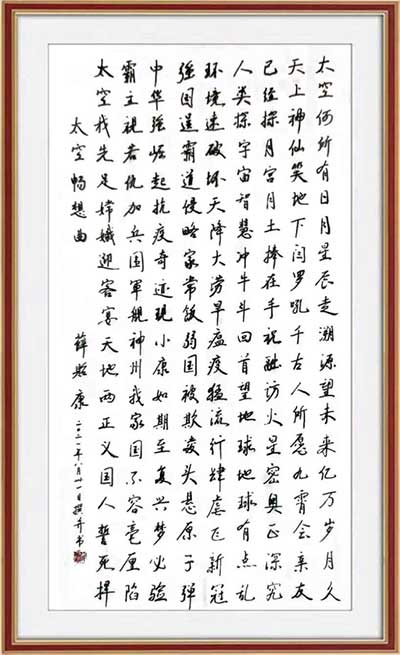 太空何所有日月星辰走溯源望未来亿万岁月久
天上神仙笑地下闫罗吼千古人所愿九霄会亲友
已经探月宫月土捧在手祝融访火星密奥正深究
人类探宇宙智慧冲牛斗回首望地球地球有点乱
环境遭破坏天降大涝旱瘟疫猛流行肆虐飞新冠
强国逞霸道侵略家常饭弱国被欺凌头悬原子弹
中华强崛起抗疫奇迹现小康如期至复兴梦必验
霸主视若仇加兵围军舰神州我家国不容毫厘陷
太空我先是嫦娥迎客宴天地两正义国人誓死捍
太空畅想曲 薛贻康 二〇二一年八月廿一日撰并书